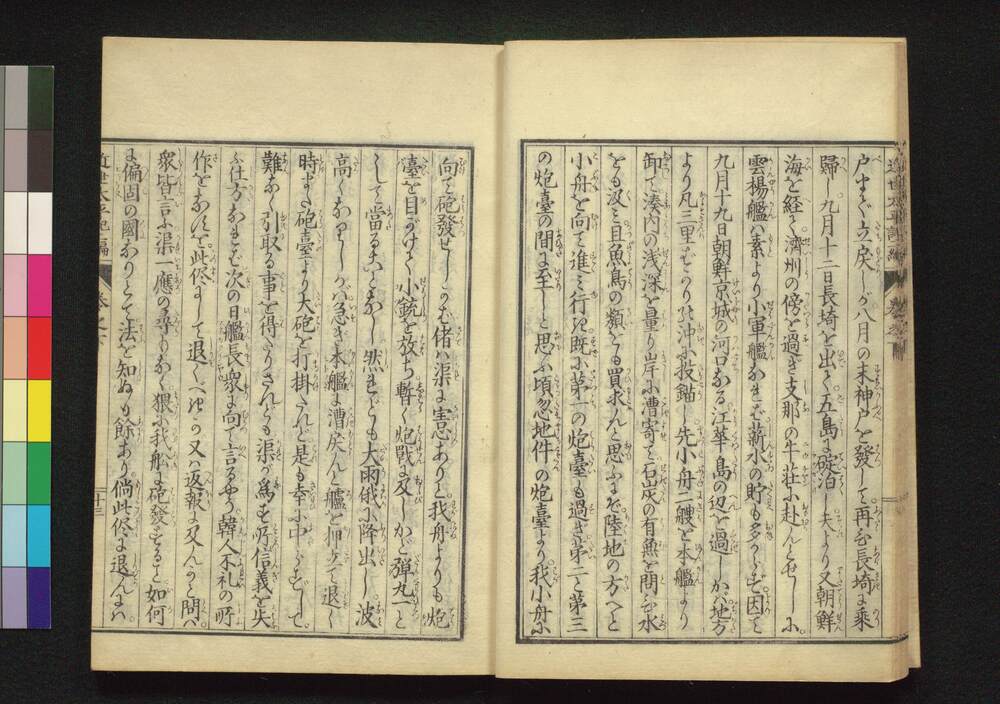 戸まで立戻しが八月の末神戸を發して再び長埼に乘
歸り九月十二日長埼を出で五島に碇泊し夫より又朝鮮
海を経て濟州の傍を過ぎ支那の牛荘に赴んとせしに
雲楊艦ハ素より小軍艦なれバ薪水の貯も多からず因て
九月十九日朝鮮京城の河口なる江華島の辺を過しかバ地方
より凡三里ばかりの沖に投錨し先小舟二艘を本艦より
卸て湊内の浅深を量り岸に漕寄て石炭の有無を問ひ水
をも汲ミ且魚鳥の類をも買求んと思ふにぞ陸地の方へと
小舟を向て進ミ行き既に第一の炮臺も過ぎ第二と第三
の炮臺の間に至しと思ふ頃忽地件の炮臺より我小舟に
向て砲發せしかバ偖ハ渠に害心ありと我舟よりも炮
臺を目がけて小銃を放ち暫く炮戰に及しかど弾丸一と
して當ることなし然れども大雨俄に降出し波
高くなりしかバ急ぎ本艦に漕戻んと艫を押て退く
時また砲臺より大砲を打掛たれど是も幸に中らずして
難なく引取る事を得たりされども渠が為す所信義を失
ふ仕方なれバ次の日艦長衆に向て言るやう韓人不礼の所
作をなすを此侭にして退くべきか又ハ返報に及んかと問へバ
衆皆言ふ渠一應の尋もなく猥に我舩に砲發すること如何
に偏固の國なりとて法を知ぬも餘あり倘此侭に退んにハ
近世太平記二編
十三